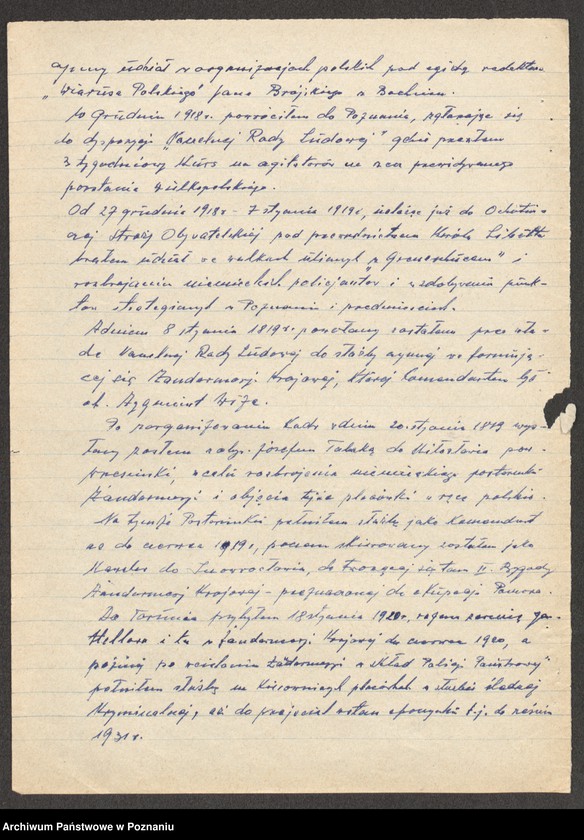 udział w organizacjach polskich pod egidą redaktora
„Wiarusa Polskiego" Jana Brejskiego w Bochum.
W Grudniu 1918 r. powróciłem do Poznania, zgłaszając się
do dyspozycji „Naczelnej Rady Ludowej" gdzie przeszłem
3 tygodniowy kurs na agitatorów na przewidywanego
powstania wielkopolskiego.
Od 27 grudnia 1918 r. - 7 stycznia 1919 r, należąc już do Ochotni-
czej Straży Obywatelskiej pod przewodnictwem Karola Libelta
brałem udział w walkach ulicznych, i
rozbrajaniu niemieckich policjantów i zdobywaniu punk-
tów strategicznych w Poznaniu i przedmieściach.
Z dniem 8 stycznia 1819 r. powołany zostałem przez wła-
dze Naczelnej Rady Ludowej do służby czynnej w formują-
cej się Żandarmerji Krajowej, której Komendantem był
ob. Zygmunt Wiza.
Po zorganizowaniu Kadr w dniu 20. stycznia 1819 wys-
łany zostałem z ob. Józefem do Miłosławia pow.
wrzesiński, w celu rozbrojenia niemieckiego posterunku
Żandarmerji i objęcia tejże placówki w ręce polskie.
Na tymże Posterunku pełniłem służbę jako Komendant
aż do czerwca 1919 r, poczem skierowany zostałem jako
do Inowrocławia, do tworzącej się tam II. Brygady
Żandarmerji Krajowej - przeznaczonej do okupacji Pomorza.
Do Torunia przybyłem 18 stycznia 1920 r, razem z armią gen.
Hallera i tu w Żandarmerji Krajowej do czerwca 1920, a
później po wcieleniu Żandarmerji w skład Policji Państwowej"
pełniłem służbę na kierowniczych placówkach w służbie śledczej
kryminalnej, aż do przejścia w stan spoczynku t.j. do
1931 r.
Archiwum Państwowe w Poznaniu